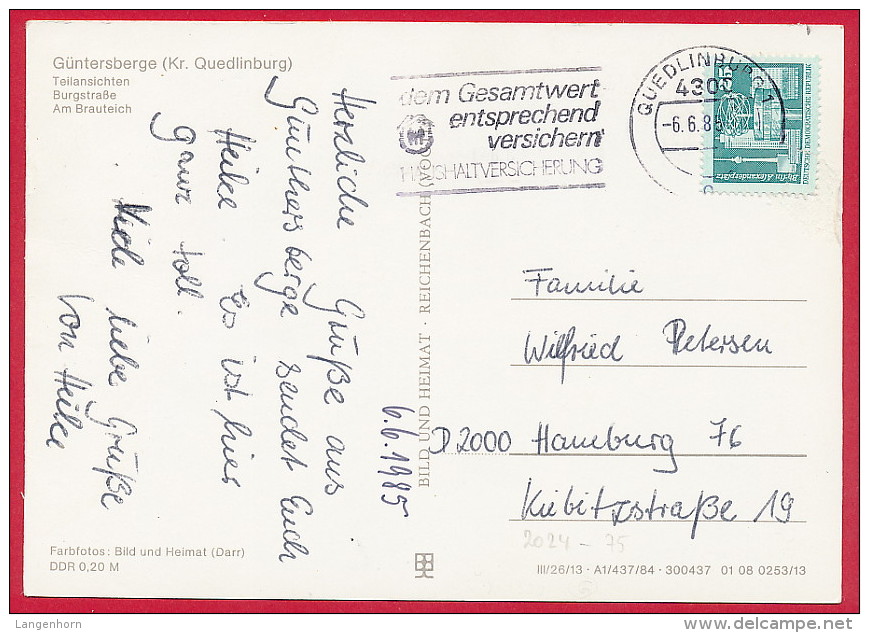 Güntersberge (Kr. Quedlinburg)
Teilansichten
Burgstraße
Am Brauteich
Herzliche Grüße aus
Günthersberge sendet Euch
Heike. Es ist hier
ganz toll.
Viele liebe Grüße
von Heike
6.6.1985
Farbfotos: Bild und Heimat (Darr)
DDR 0,20 M
BILD UND HEIMAT · REICHENBACH (VOG
dem Gesamtwert
entsprechend
versichern
HAUSHALTVERSICHERUNG
QUEDLINBURG 1
4300
-6.6.85
25
Berlin, Alexanderplatz
DEUTSCHE DEMOKRATISCHE REPUBLIK
Familie
Wilfried Petersen
D 2000 Hamburg 76
Kiebitzstraße 19
2024 - 75
III/26/13 · A1/437/84 · 300437 01 08 0253/13
Langenhorn
delcampe.net